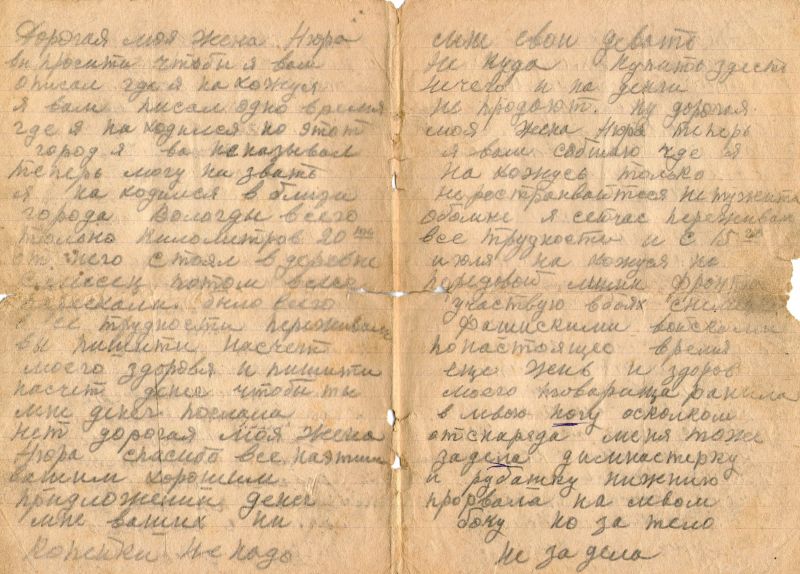 Дорогая моя жена Нюра
вы просити чтобы я вам
описал где я на хожуся
я вам писал одно время
где я на ходился но этот
город я ва не называл
теперь могу на звать
я на ходился в близи
города Вологды всего
только километров 20
от него стоял в деревне
потом
было всего
все трудности переживали
вы пишити насчет
моего здоровя и пишити
насчет денег чтобы ты
мне денег послала
нет дорогая моя жена
Нюра спасибо все
вашим хорошим
придложении денег
мне ваших ни
копейки не надо
мне свои девать
не куда купить здесь
нечего и на денги
не продают. ну дорогая
моя жена Нюра теперь
я вам сабшаю где я
на хожусь только
не ростраивайтеся не тужите
обомне я сейчас переживаю
все трудности и с 15
июля на хожуся на
передовой линии фронта
участвую вбоях
фашискими войсками
понастоящее время
еще жив и здоров
моего товарища ранила
в мвою ногу осколком
отснаряда меня тоже
задела димнастерку
и рубашку нижнию
прорвала на мвом
боку но за тело
не за дела